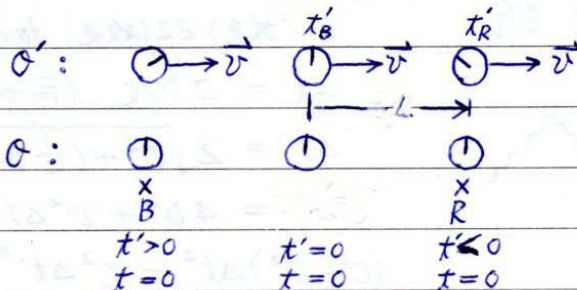 t'_B t'_R
O' : → v⃗ → v⃗ → v⃗
L
O :
× ×
B R
t'>0 t'=0 t'<0
t=0 t=0 t=0